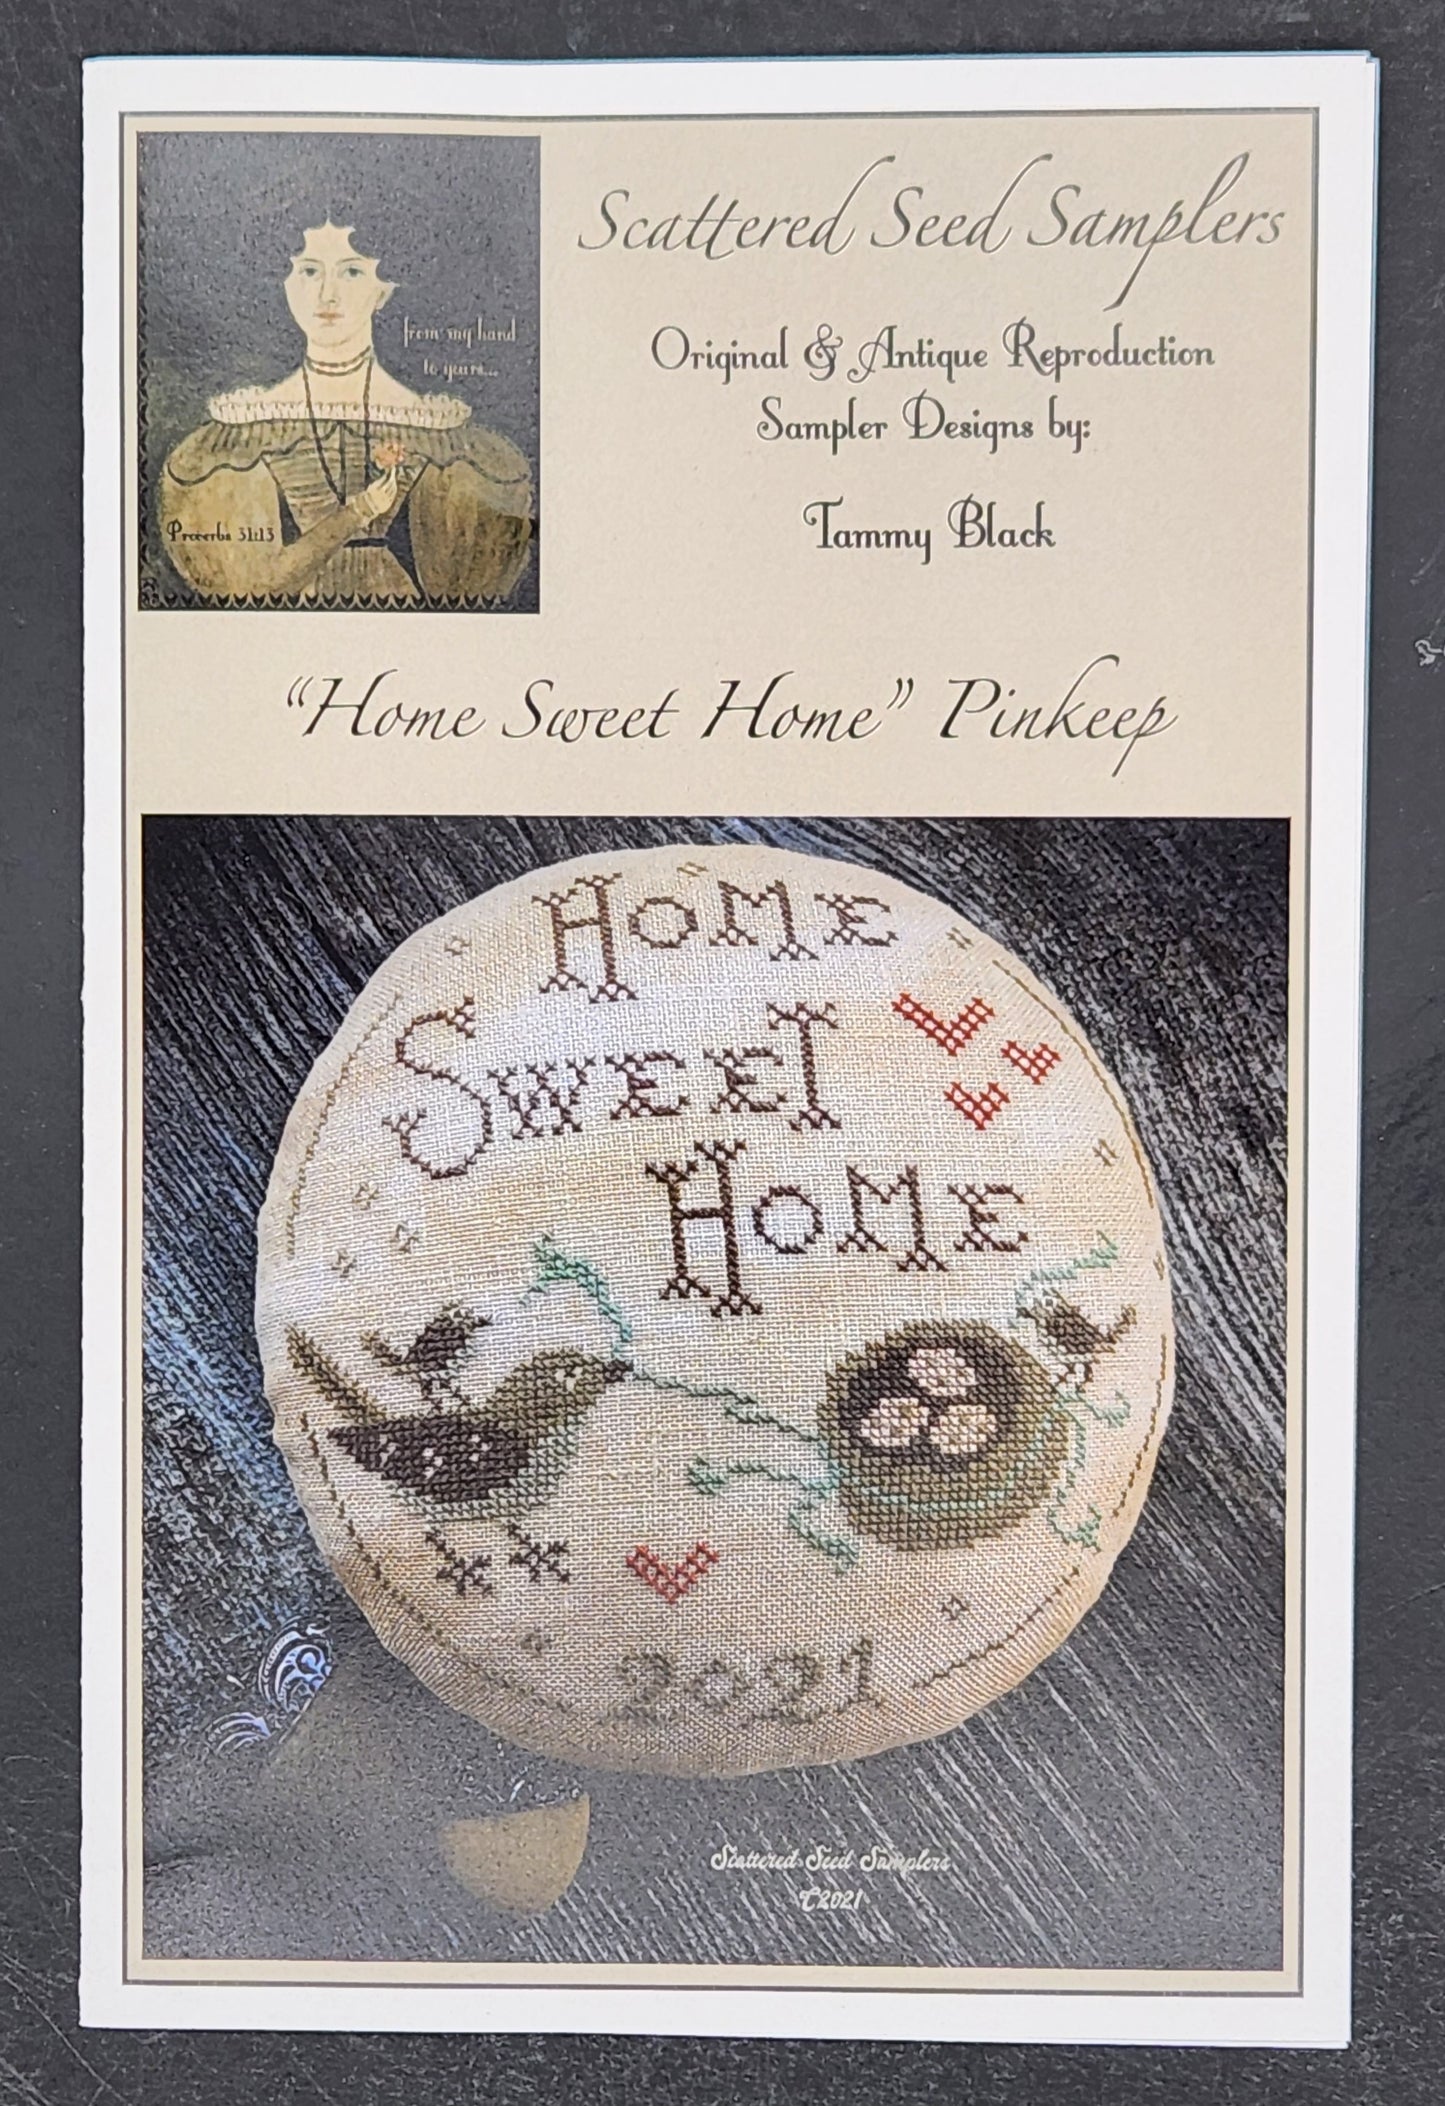 Scattered Seed Samplers
Original & Antique Reproduction
Sampler Designs by:
Tammy Black
from my hand
to yours...
Proverbs 31:13
"Home Sweet Home" Pinkeep
HOME
SWEET
HOME
2021
Scattered Seed Samplers
©2021